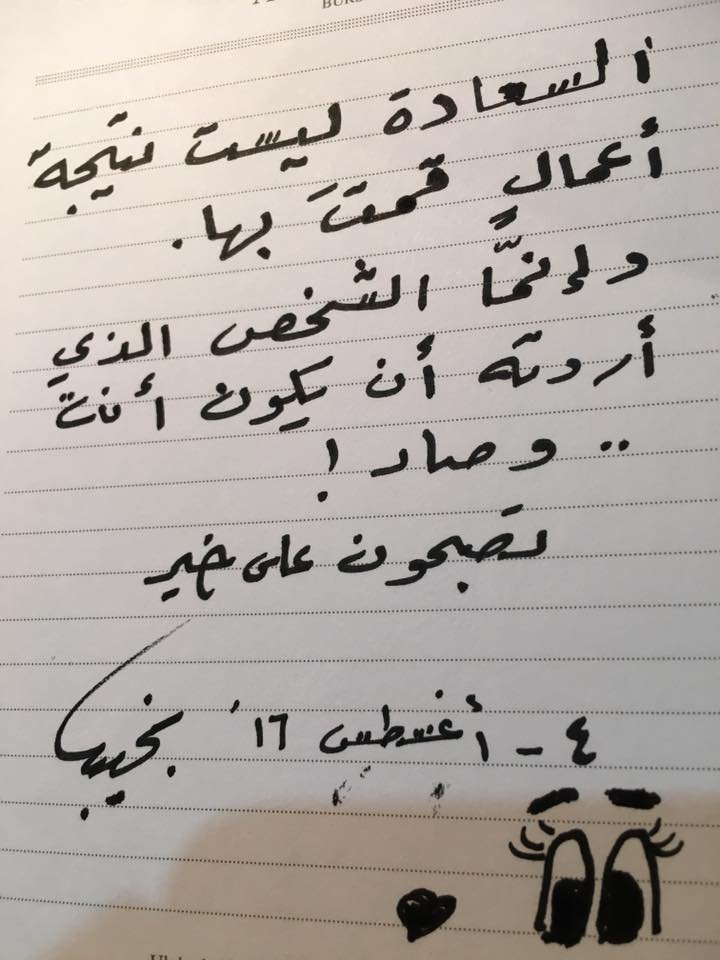 السعادة ليست نتيجة
أعمالٍ قمتَ بها.
وإنمّا الشخص الذي
أردته أن يكون أنت
.. وصار !
تصبحون على خير
٤ - أغسطس ١٦' نجيب